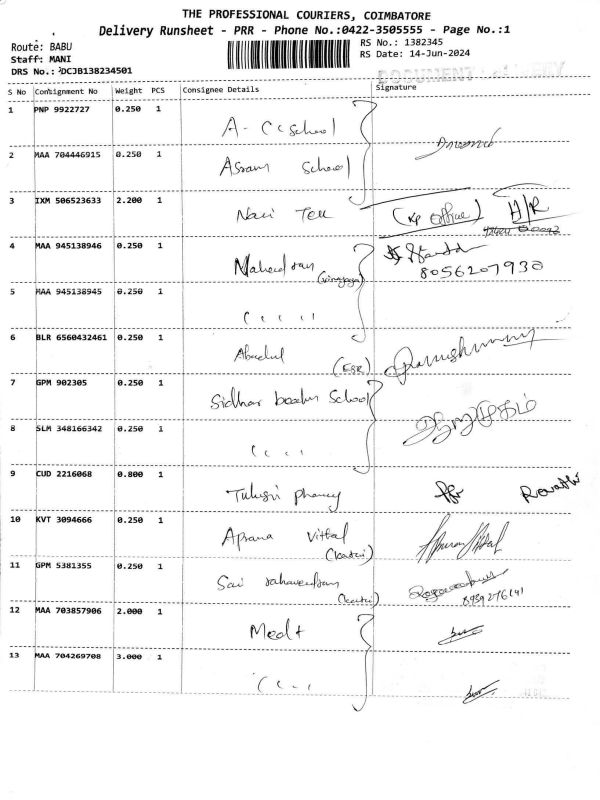 THE PROFESSIONAL COURIERS, COIMBATORE
Delivery Runsheet - PRR - Phone No.:0422-3505555 - Page No.:1
Route: BABU
RS No.: 1382345
Staff: MANI
RS Date: 14-Jun-2024
DRS No.: DCJB138234501
S No Contignment No Weight PCS Consignee Details Signature
1 PNP 9922727 0.250 1 A- CC School
2 MAA 704446915 0.250 1 Asram School
3 IXM 506523633 2.200 1 Navi Tex (Kp office) H/R
4 MAA 945138946 0.250 1 Mahendran 8056207930
5 MAA 945138945 0.250 1
6 BLR 6560432461 0.250 1 Abudul
7 GPM 902305 0.250 1 Sidhar School ஆறுமுகம்
8 SLM 348166342 0.250 1
9 CUD 2216068 0.800 1 Tulusri Revathi
10 KVT 3094666 0.250 1 Aprana Vittal
11 GPM 5381355 0.250 1 Sai rahavendran
8939276141
12 MAA 703857906 2.000 1 Med+
13 MAA 704269708 3.000 1